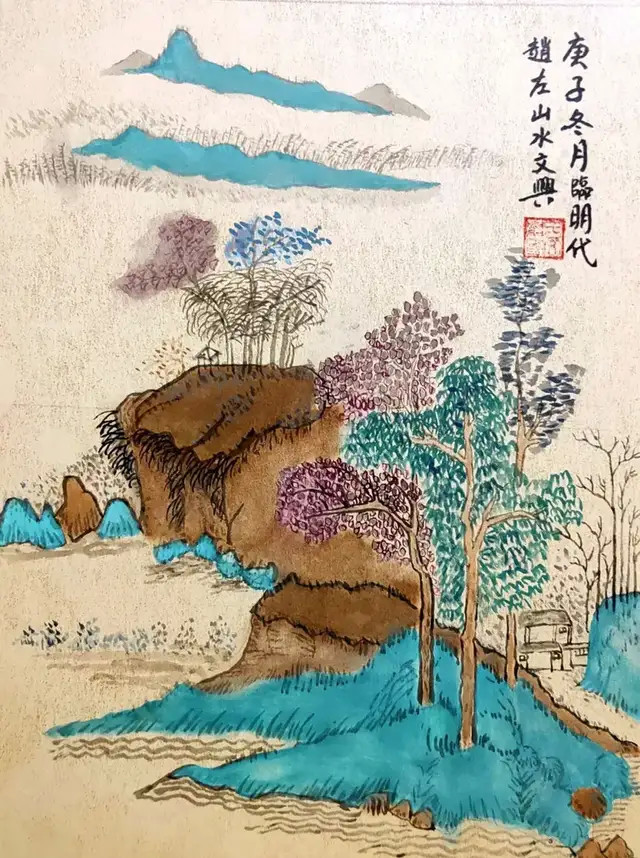 庚子冬月臨明代
趙左山水文興